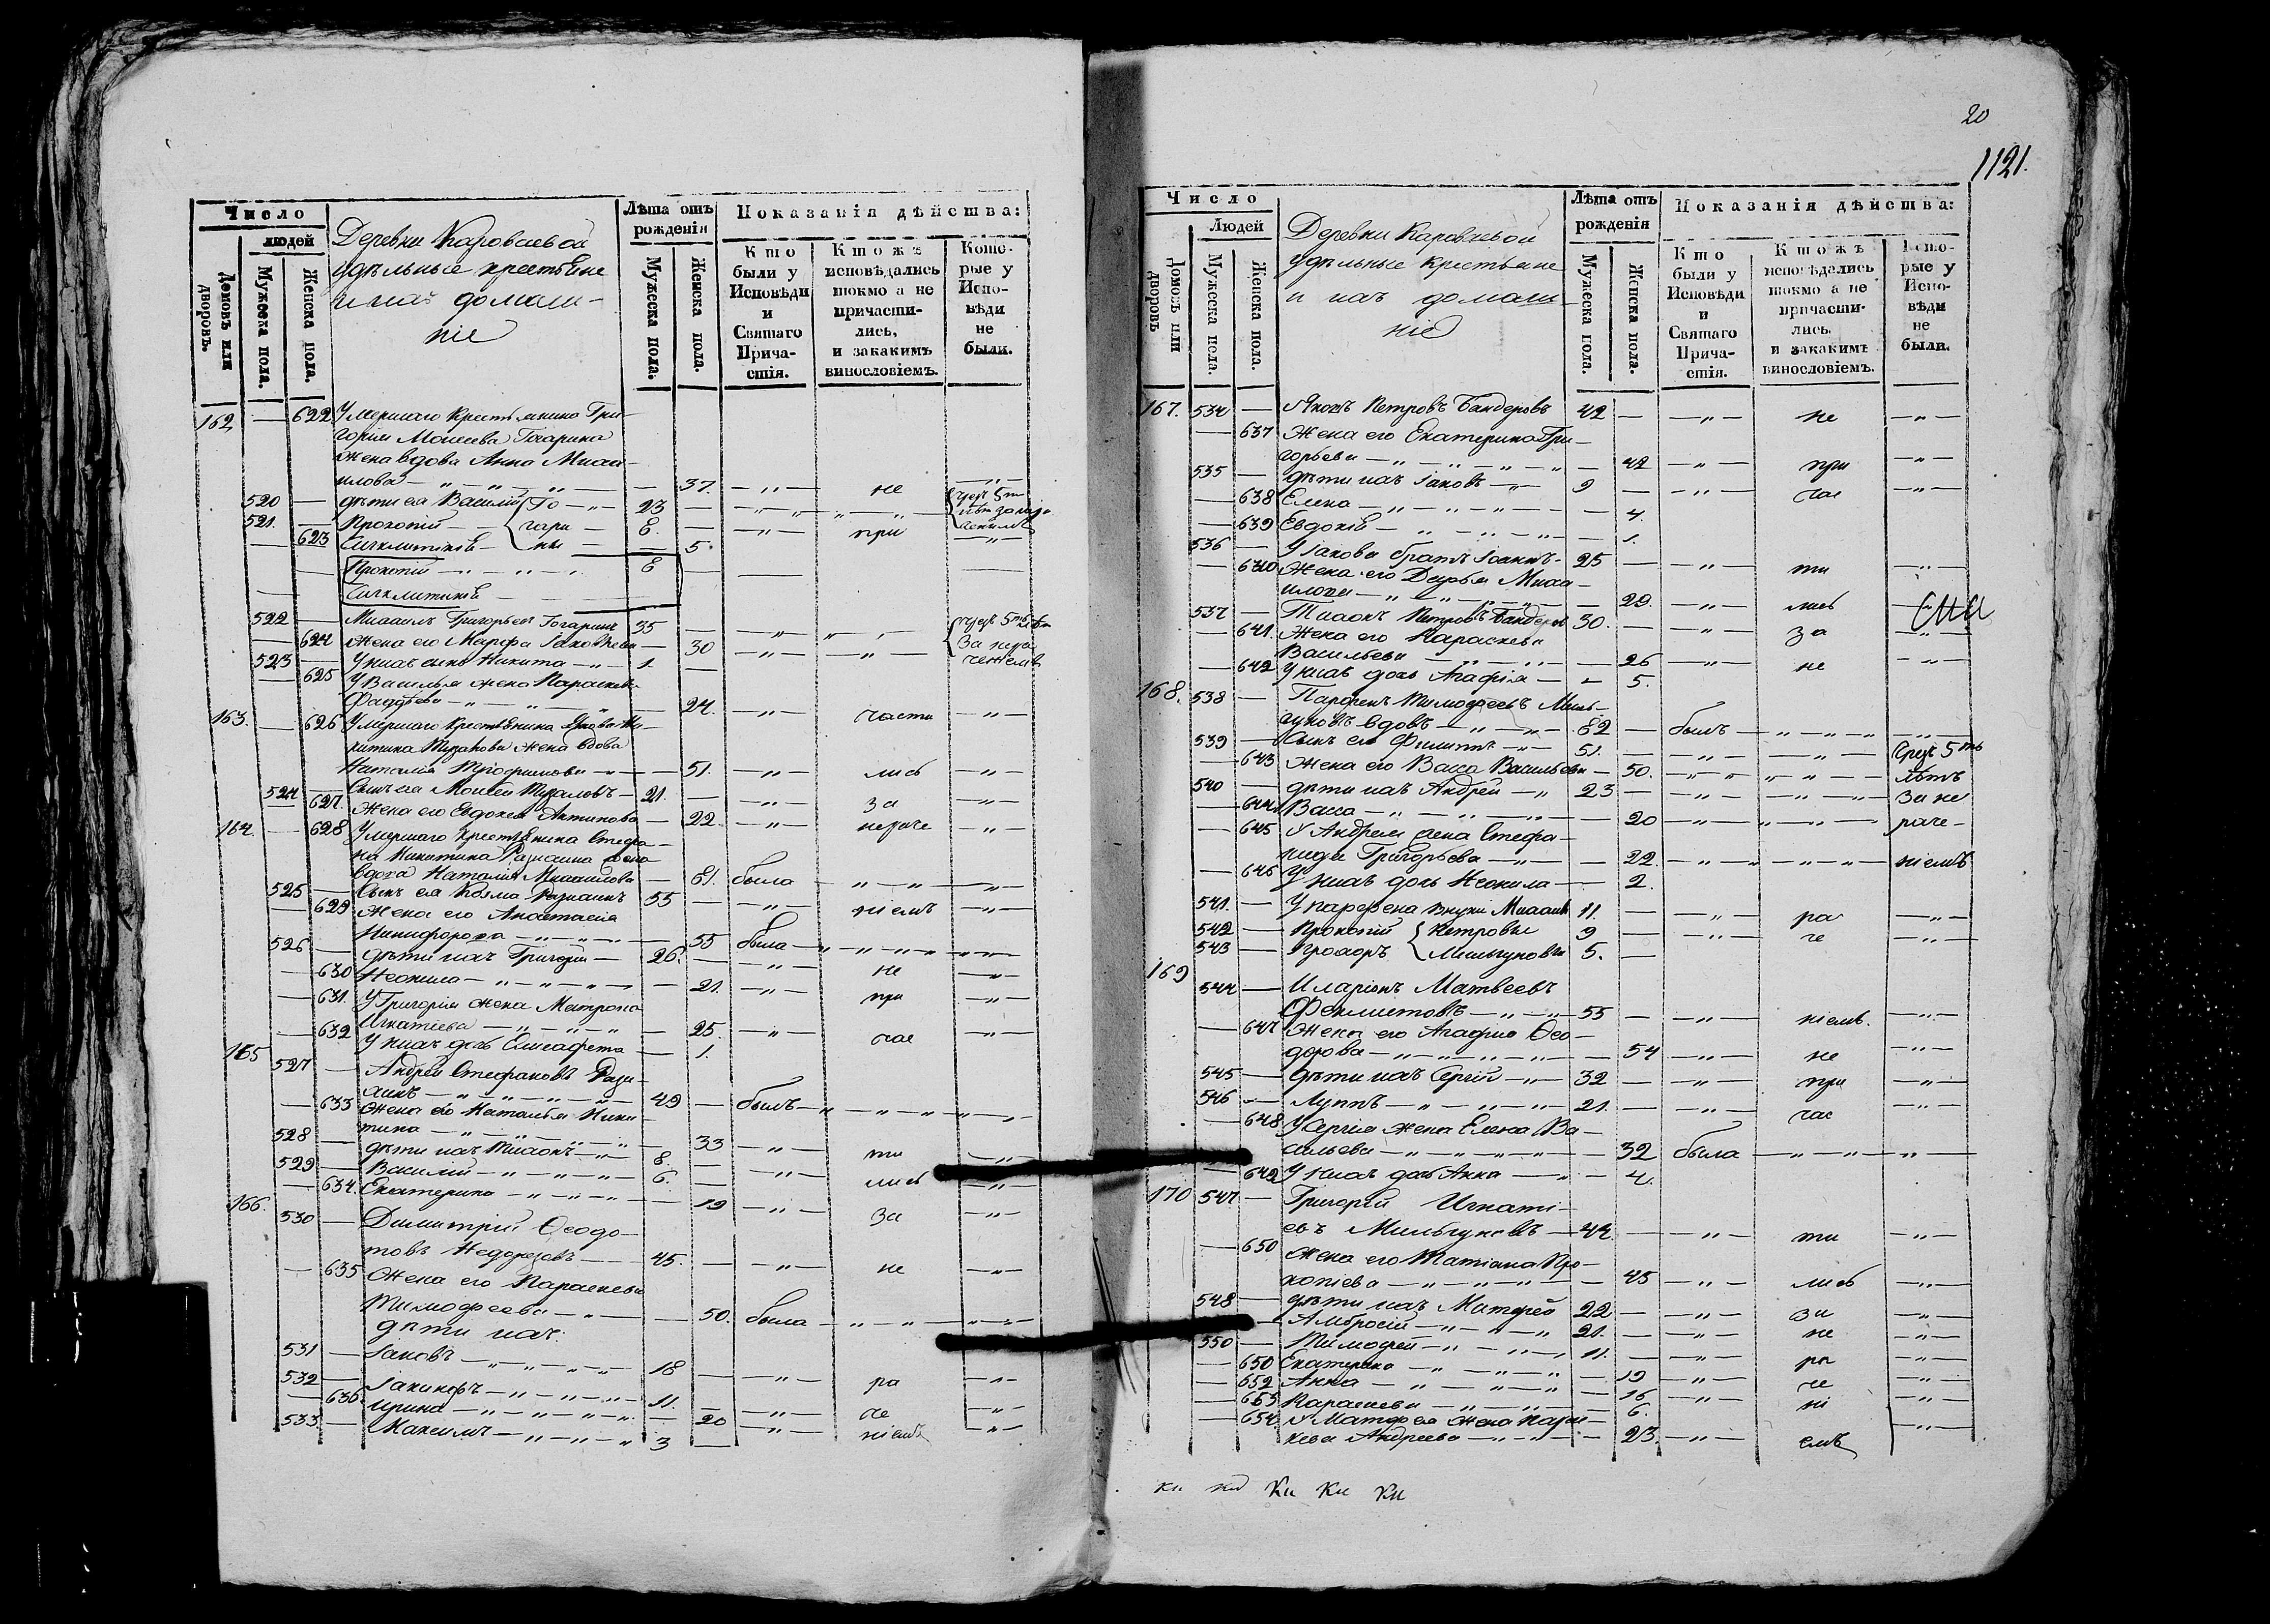 Число
людей
Домовъ или дворовъ.
Мужеска пола.
Женска пола.
Деревни Кароваевой
удѣльные крестьяне
и ихъ домаш-
ніе
Лѣта отъ рожденія
Мужеска пола.
Женска пола.
Показанія дѣйства:
Кто были у Исповѣди и Святаго Прича-стія.
Ктожъ исповѣдались токмо а не причасти-лись, и закакимъ винословіемъ.
Кото-рые у Испо-вѣди не были.
162 — 622 Умершаго крестьянина Гри-
горія Моисеева Гагарина
жена вдова Анна Миха-
илова — 37. — не —
520 — дѣти ея Василій Го- 23
521. — Прокопій гари 8. — при
— 623 ны — 5.
Прокопій 8
522 — Михаилъ Григорьевъ Гагаринъ 35
— 624 жена его Марфа Іаковлева — 30
523 — У нихъ сынъ Никита 1.
— 625 У Василья жена Параскева
Фаддѣева — 24. — части
163. — 626 Умершаго крестьянина Якова Ни-
китина жена вдова
Наталія Трофимова — 51. — лись
524 — Сынъ ея Моисей — 21. — за
627. Жена его Евдокея Антипова — 22. — нераче
164. — 628 Умершаго крестьянина Стефа-
на Никитина жена
вдова Наталія Михаилова — 81. была
525 — Сынъ ея Козма 55 — ніемъ
— 629 Жена его Анастасія
Никифорова — 55 была
526 — дѣти ихъ Григорій — 26. — не
— 630 Неонила — 21. — при
— 631. У Григорія жена Матрона
Игнатіева — 25. — час
— 632 У нихъ дочь Елисавета — 1.
165 527 — Андрей Стефановъ
49 — былъ
— 633 жена его Наталья Ники-
тина — 33 — ти
528 — дѣти ихъ Тихонъ 8.
529 — Василій — 6. — лись
— 634. Екатерина — 19 — за
166. 530 — Димитрій Ѳеодо-
товъ Недорезовъ — 45. — не
— 635 Жена его Параскева
Тимофеева — 50. была
дѣти ихъ:
531 — Іаковъ — 18 — ра
532 — 11. — че
— 636 Ирина — 20 — ніемъ
533. — Максимъ — 3
20
1121.
Число
Людей
Домовъ или дворовъ
Мужеска пола.
Женска пола.
Деревни Кароваевой
Удѣльные крестьяне
и ихъ домаш-
ніе
Лѣта отъ рожденія
Мужеска пола.
Женска пола.
Показанія дѣйства:
Кто были у Исповѣди и Святаго Прича-стія.
Ктожъ исповѣдались токмо а не причасти-лись. и закакимъ винословіемъ.
Кото-рые у Испо-вѣди не были.
167. 534 — Петровъ Бандеровъ 42 — не
— 637 Жена его Екатерина Гри-
горьева — 42 — при
535 — дѣти ихъ Іаковъ — 9 — час
— 638 Елена — 4.
— 639 Евдокія — 1.
536 — У Іакова братъ Іоаннъ 25 — ти
— 640 Жена его Дарья Миха-
илова — 29. — лись
537 — Тихонъ Петровъ Бандеровъ 30. — за
— 641. Жена его Параскева
Васильева — 26 — не
— 642 У нихъ дочь Агафія — 5.
168. 538 — Парфенъ Тимофеевъ Миль-
гуновъ вдовъ — 82 — былъ
539 — Сынъ его Филиппъ — 51. — Чрезъ 5ть
— 643 Жена его Васса Васильева — 50. — лѣтъ
540 — дѣти ихъ Андрей — 23 — за не
— 644 Васса — 20 — раче-
— 645 У Андрея жена Стефа-
нида Григорьева — 22. — ніемъ
— 646 У нихъ дочь Неонила — 2.
541. — У Парфена внуки Михаилъ 11. — ра
542 — Прокопій Петровы 9 — че
543 — Прохоръ Мильгуновы 5.
169 544 — Иларіонъ Матвеевъ
Феклистовъ — 55 — ніемъ.
— 647 Жена его Агафия Ѳео-
дорова — 54 — не
545 — дѣти ихъ Сергій — 32 — при
546 — Луппъ — 21. — час
— 648 У Сергія жена Елена Ва-
сильева — 32 была
— 649 У нихъ дочь Анна — 4.
170 547 — Григорій Игнаті-
евъ Мильгуновъ — 44. — ти
— 650 Жена его Татіана Про-
копіева — 45 — лись
548 — дѣти ихъ Матфей 22 — за
Амбросій — 21. — не
550 — Тимофей — 11. — ра
— 650 Екатерина — 19 — че
— 652 Анна — 16 — ні
— 653 Параскева — 6.
— 654 У Матфея жена Парас-
кева Андреева — 23. — емъ
ки ки Ки Ки Ки